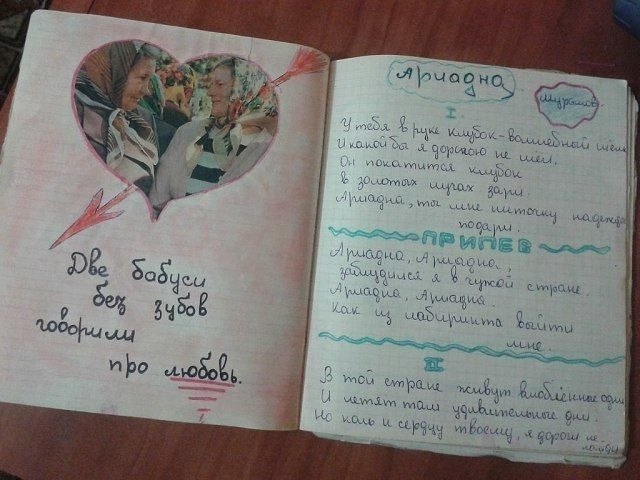 Две бабуси
без зубов
говорили
про любовь.
Ариадна
Муромов.
I
У тебя в руке клубок - волшебный шёлк
И какой бы я дорогою не шёл,
Он покатится клубок
в золотых лучах зари.
Ариадна, ты мне ниточку надежды
подари.
ПРИПЕВ
Ариадна, Ариадна,
заблудился я в чужой стране.
Ариадна, Ариадна.
Как из лабиринта выйти
мне.
II
В той стране живут влюблённые одни
И летят там удивительные дни.
Но коль к сердцу твоему, я дороги не
найду